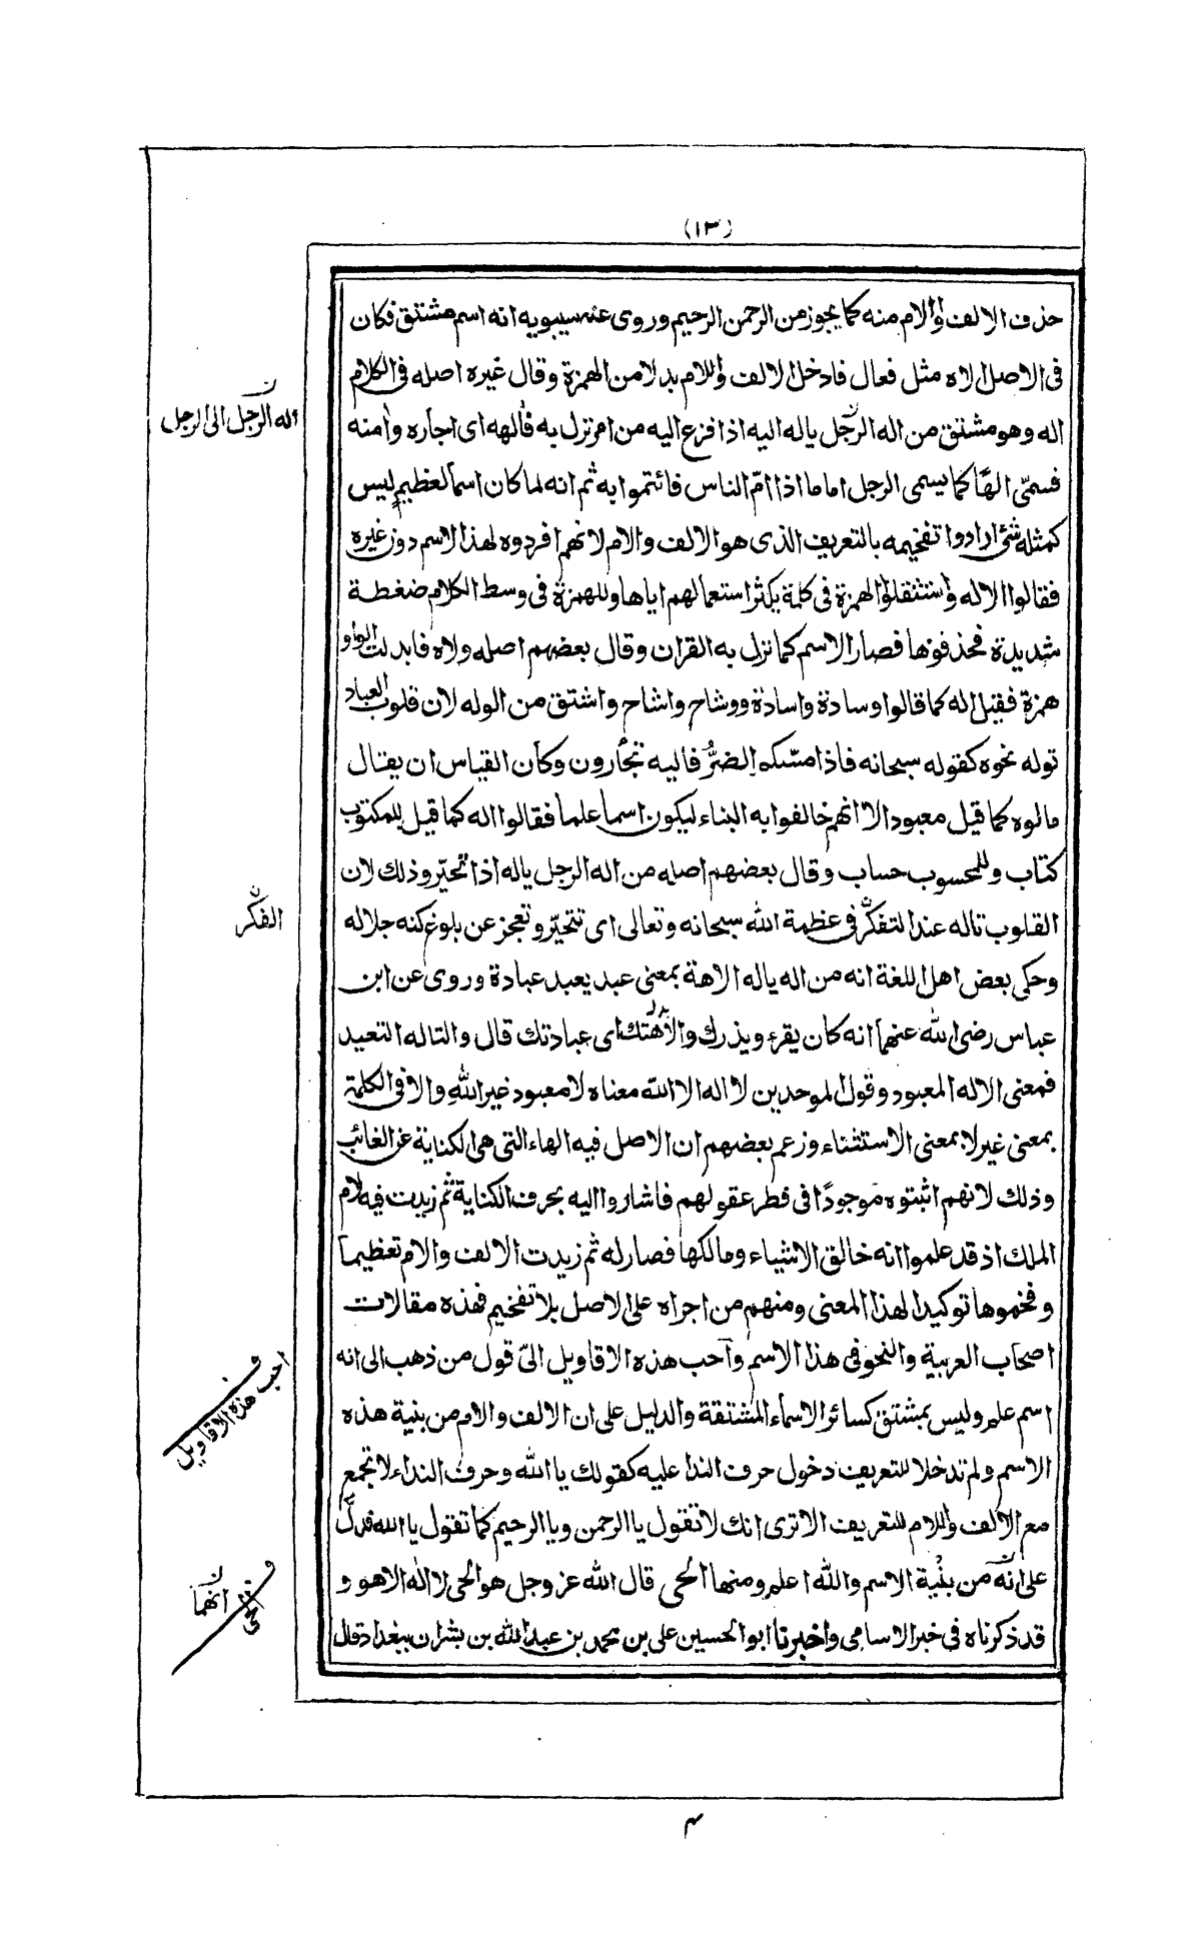 (١٣)
حذف الالف والام منه كما يجوز من الرحمن الرحيم وروى عنه سيبويه انه اسم مشتق فكان
فى الاصل الاه مثل فعال فادخل الالف واللام بدلا من الهمزة وقال غيره اصله فى الكلام
اله وهو مشتق من اله الرجل ياله اليه اذا فزع اليه من امر نزل به فألهه اى اجاره وأمنه
اله الرجل الى الرجل
فسمّى الهًا كما يسمى الرجل اماما اذا امّ الناس فائتموا به ثم انه لما كان اسما لعظيم ليس
كمثله شئ ارادوا تفخيمه بالتعريف الذى هو الالف والام لانهم افردوه لهذا الاسم دون غيره
فقالوا الاله واستثقلوا الهمزة فى كلمة يكثر استعمالهم اياها وللهمزة فى وسط الكلام ضغطة
شديدة فحذفوها فصار الاسم كما نزل به القران وقال بعضهم اصله ولاه فابدلت الواو
همزة فقيل اله كما قالوا وسادة واسادة ووشاح واشاح واشتق من الوله لان قلوب العباد
توله نحوه كقوله سبحانه فاذا مسّكم الضرُّ فاليه تجأرون وكان القياس ان يقال
مالوه كما قيل معبود الا انهم خالفوا به البناء ليكون اسما علما فقالوا اله كما قيل للمكتوب
كتاب وللمحسوب حساب وقال بعضهم اصله من اله الرجل ياله اذا تحيّر وذلك لان
القلوب تاله عند التفكّر فى عظمة الله سبحانه وتعالى اى تتحيّر وتعجز عن بلوغ كنه جلاله
الفكر
وحكى بعض اهل اللغة انه من اله ياله الاهة بمعنى عبد يعبد عبادة وروى عن ابن
عباس رضى الله عنهما انه كان يقرء ويذرك والاهتك اى عبادتك قال والتاله التعبد
فمعنى الاله المعبود وقول الموحدين لا اله الا الله معناه لا معبود غير الله والا فى الكلمة
بمعنى غير لا بمعنى الاستثناء وزعم بعضهم ان الاصل فيه الهاء التى هى الكناية عن الغائب
وذلك لانهم اثبتوه موجودًا فى فطر عقولهم فاشاروا اليه بحرف الكناية ثم زيدت فيه لام
الملك اذ قد علموا انه خالق الاشياء ومالكها فصار له ثم زيدت الالف والام تعظيما
وفخموها توكيدا لهذا المعنى ومنهم من اجراه على الاصل بلا تفخيم فهذه مقالات
اصحاب العربية والنحو فى هذا الاسم وأحب هذه الاقاويل الىّ قول من ذهب الى انه
احب هذه الاقاويل
اسم علم وليس بمشتق كسائر الاسماء المشتقة والدليل على ان الالف والام من بنية هذه
الاسم ولم تدخلا للتعريف دخول حرف الندا عليه كقولك يا الله وحرف النداء لا تجمع
مع الالف واللام للتعريف الا ترى انك لا تقول يا الرحمن ويا الرحيم كما تقول يا الله فدلّ
على انه من بنية الاسم والله اعلم ومنها الحى قال الله عز وجل هو الحى لا اله الا هو و
انهما
قد ذكرناه فى خبر الاسامى واخبرنا ابو الحسين على بن محمد بن عبد الله بن بشران ببغداد قال